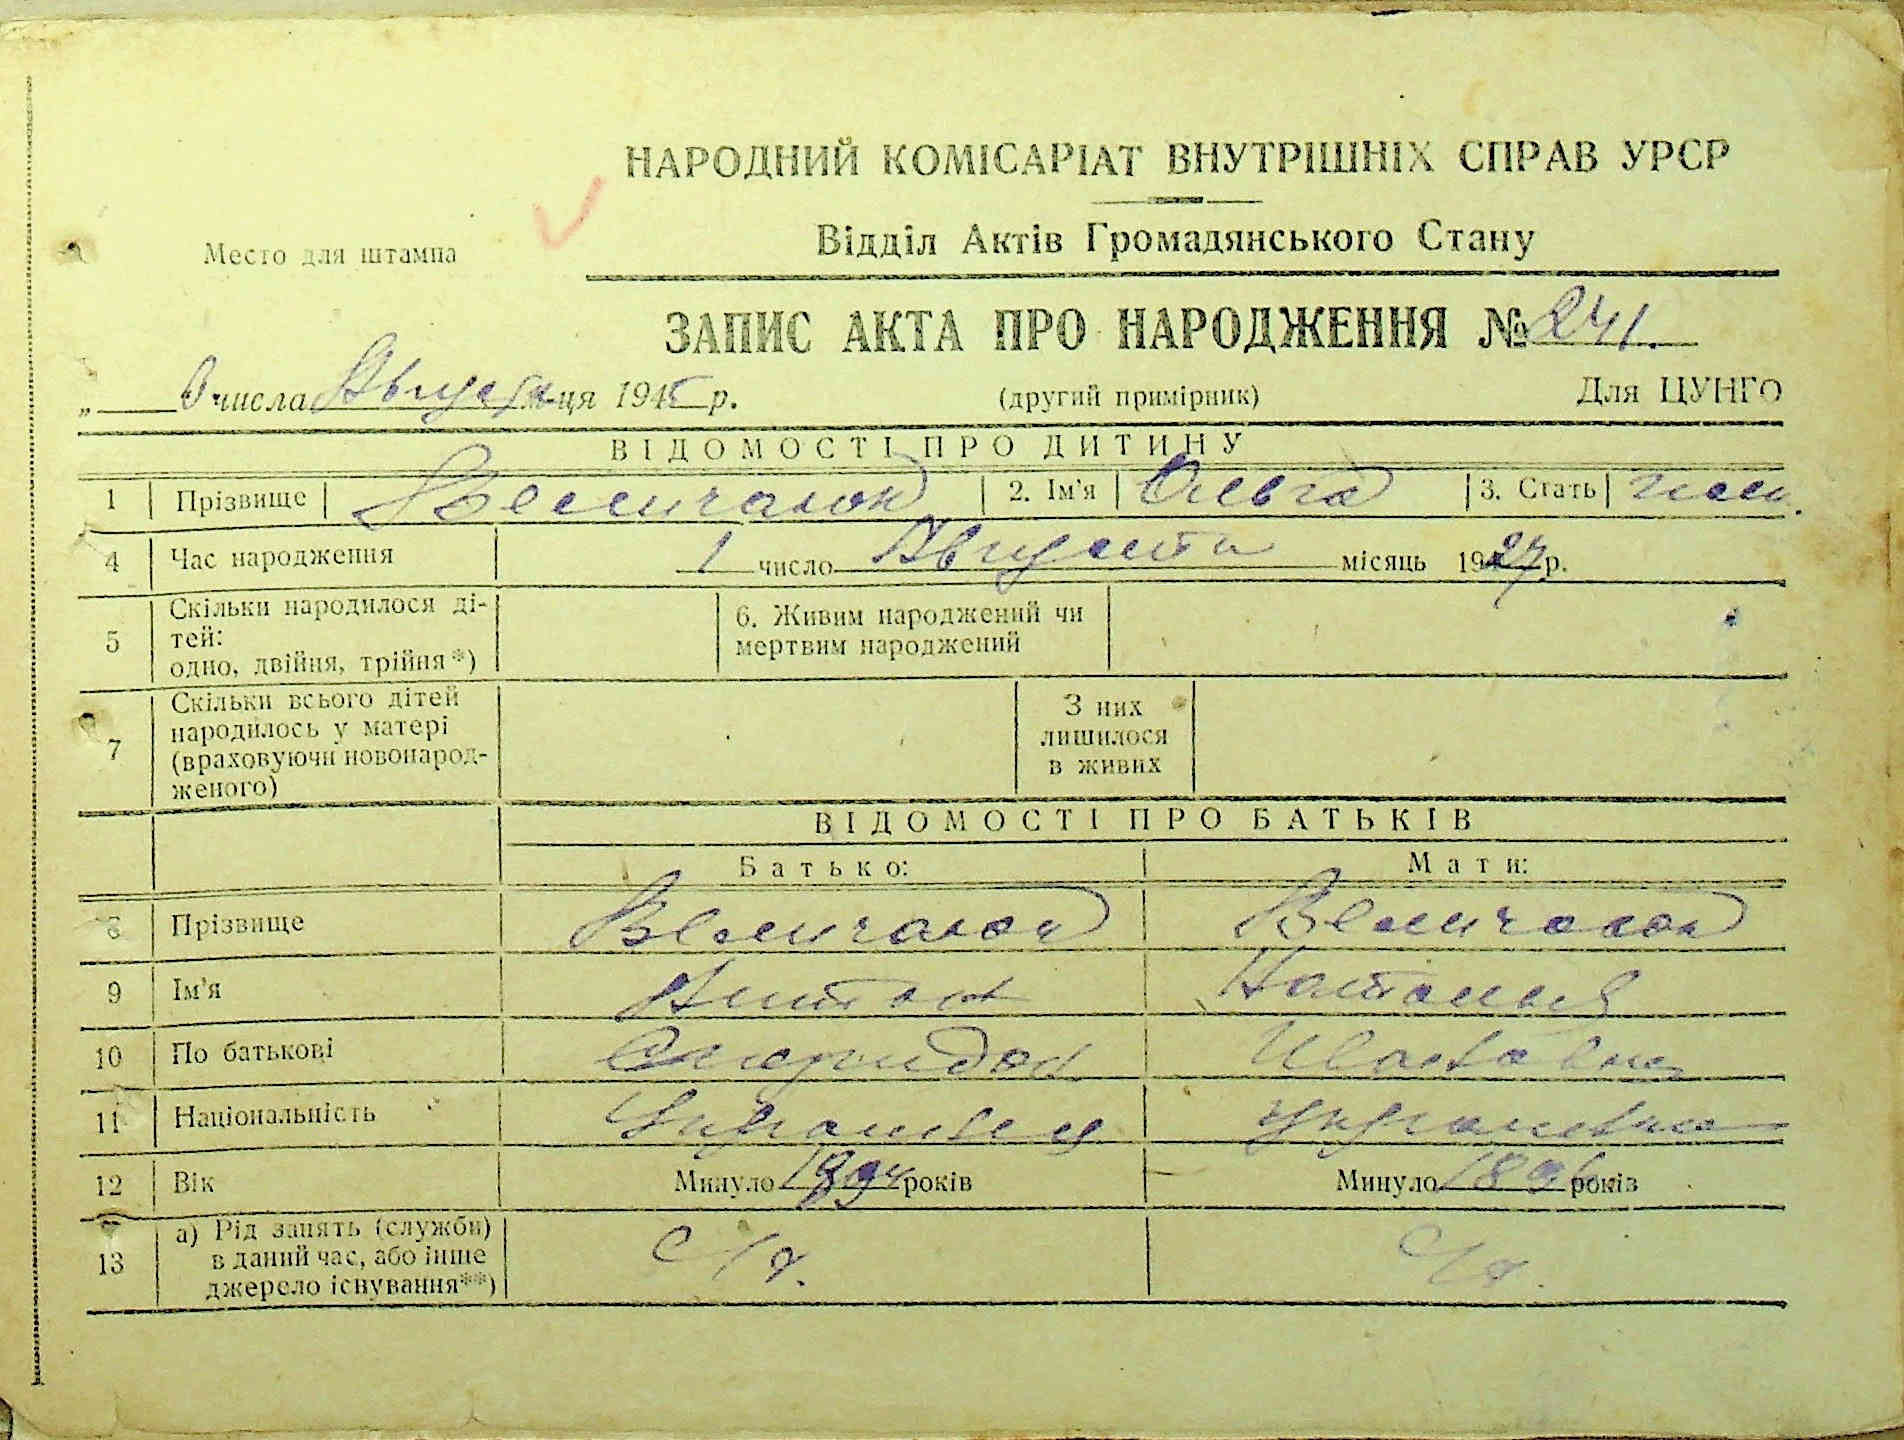 НАРОДНИЙ КОМІСАРІАТ ВНУТРІШНІХ СПРАВ УРСР
Відділ Актів Громадянського Стану
Место для штампа
ЗАПИС АКТА ПРО НАРОДЖЕННЯ № 241.
„ числа Августа м-ця 1945 р. (другий примірник) Для ЦУНГО
ВІДОМОСТІ ПРО ДИТИНУ
1 Прізвище 2. Ім'я Ольга 3. Стать
4 Час народження 1 число Августа місяць 1927 р.
5 Скільки народилося ді-
тей:
одно, двійня, трійня*)
6. Живим народжений чи
мертвим народжений
7 Скільки всього дітей
народилось у матері
(враховуючи новонарод-
женого)
З них
лишилося
в живих
ВІДОМОСТІ ПРО БАТЬКІВ
Батько: Мати:
8 Прізвище
9 Ім'я Антон Наталия
10 По батькові Спиридон Ивановна
11 Національність Украинец Украинка
12 Вік Минуло 1894 років Минуло 1896 років
13 а) Рід занять (служби)
в даний час, або інше
джерело існування**)